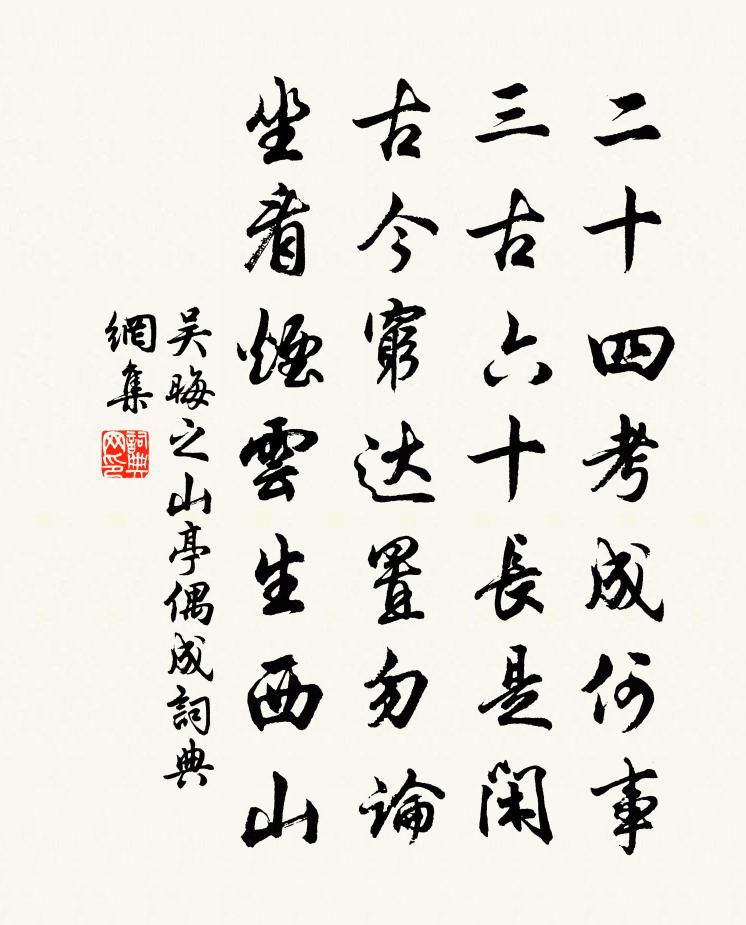 二十四考成何事
三古六十長是閑
古今窮达置勿論
坐看煙雲生西山
吴晦之山亭偶成詞典
網集
詞典
网印